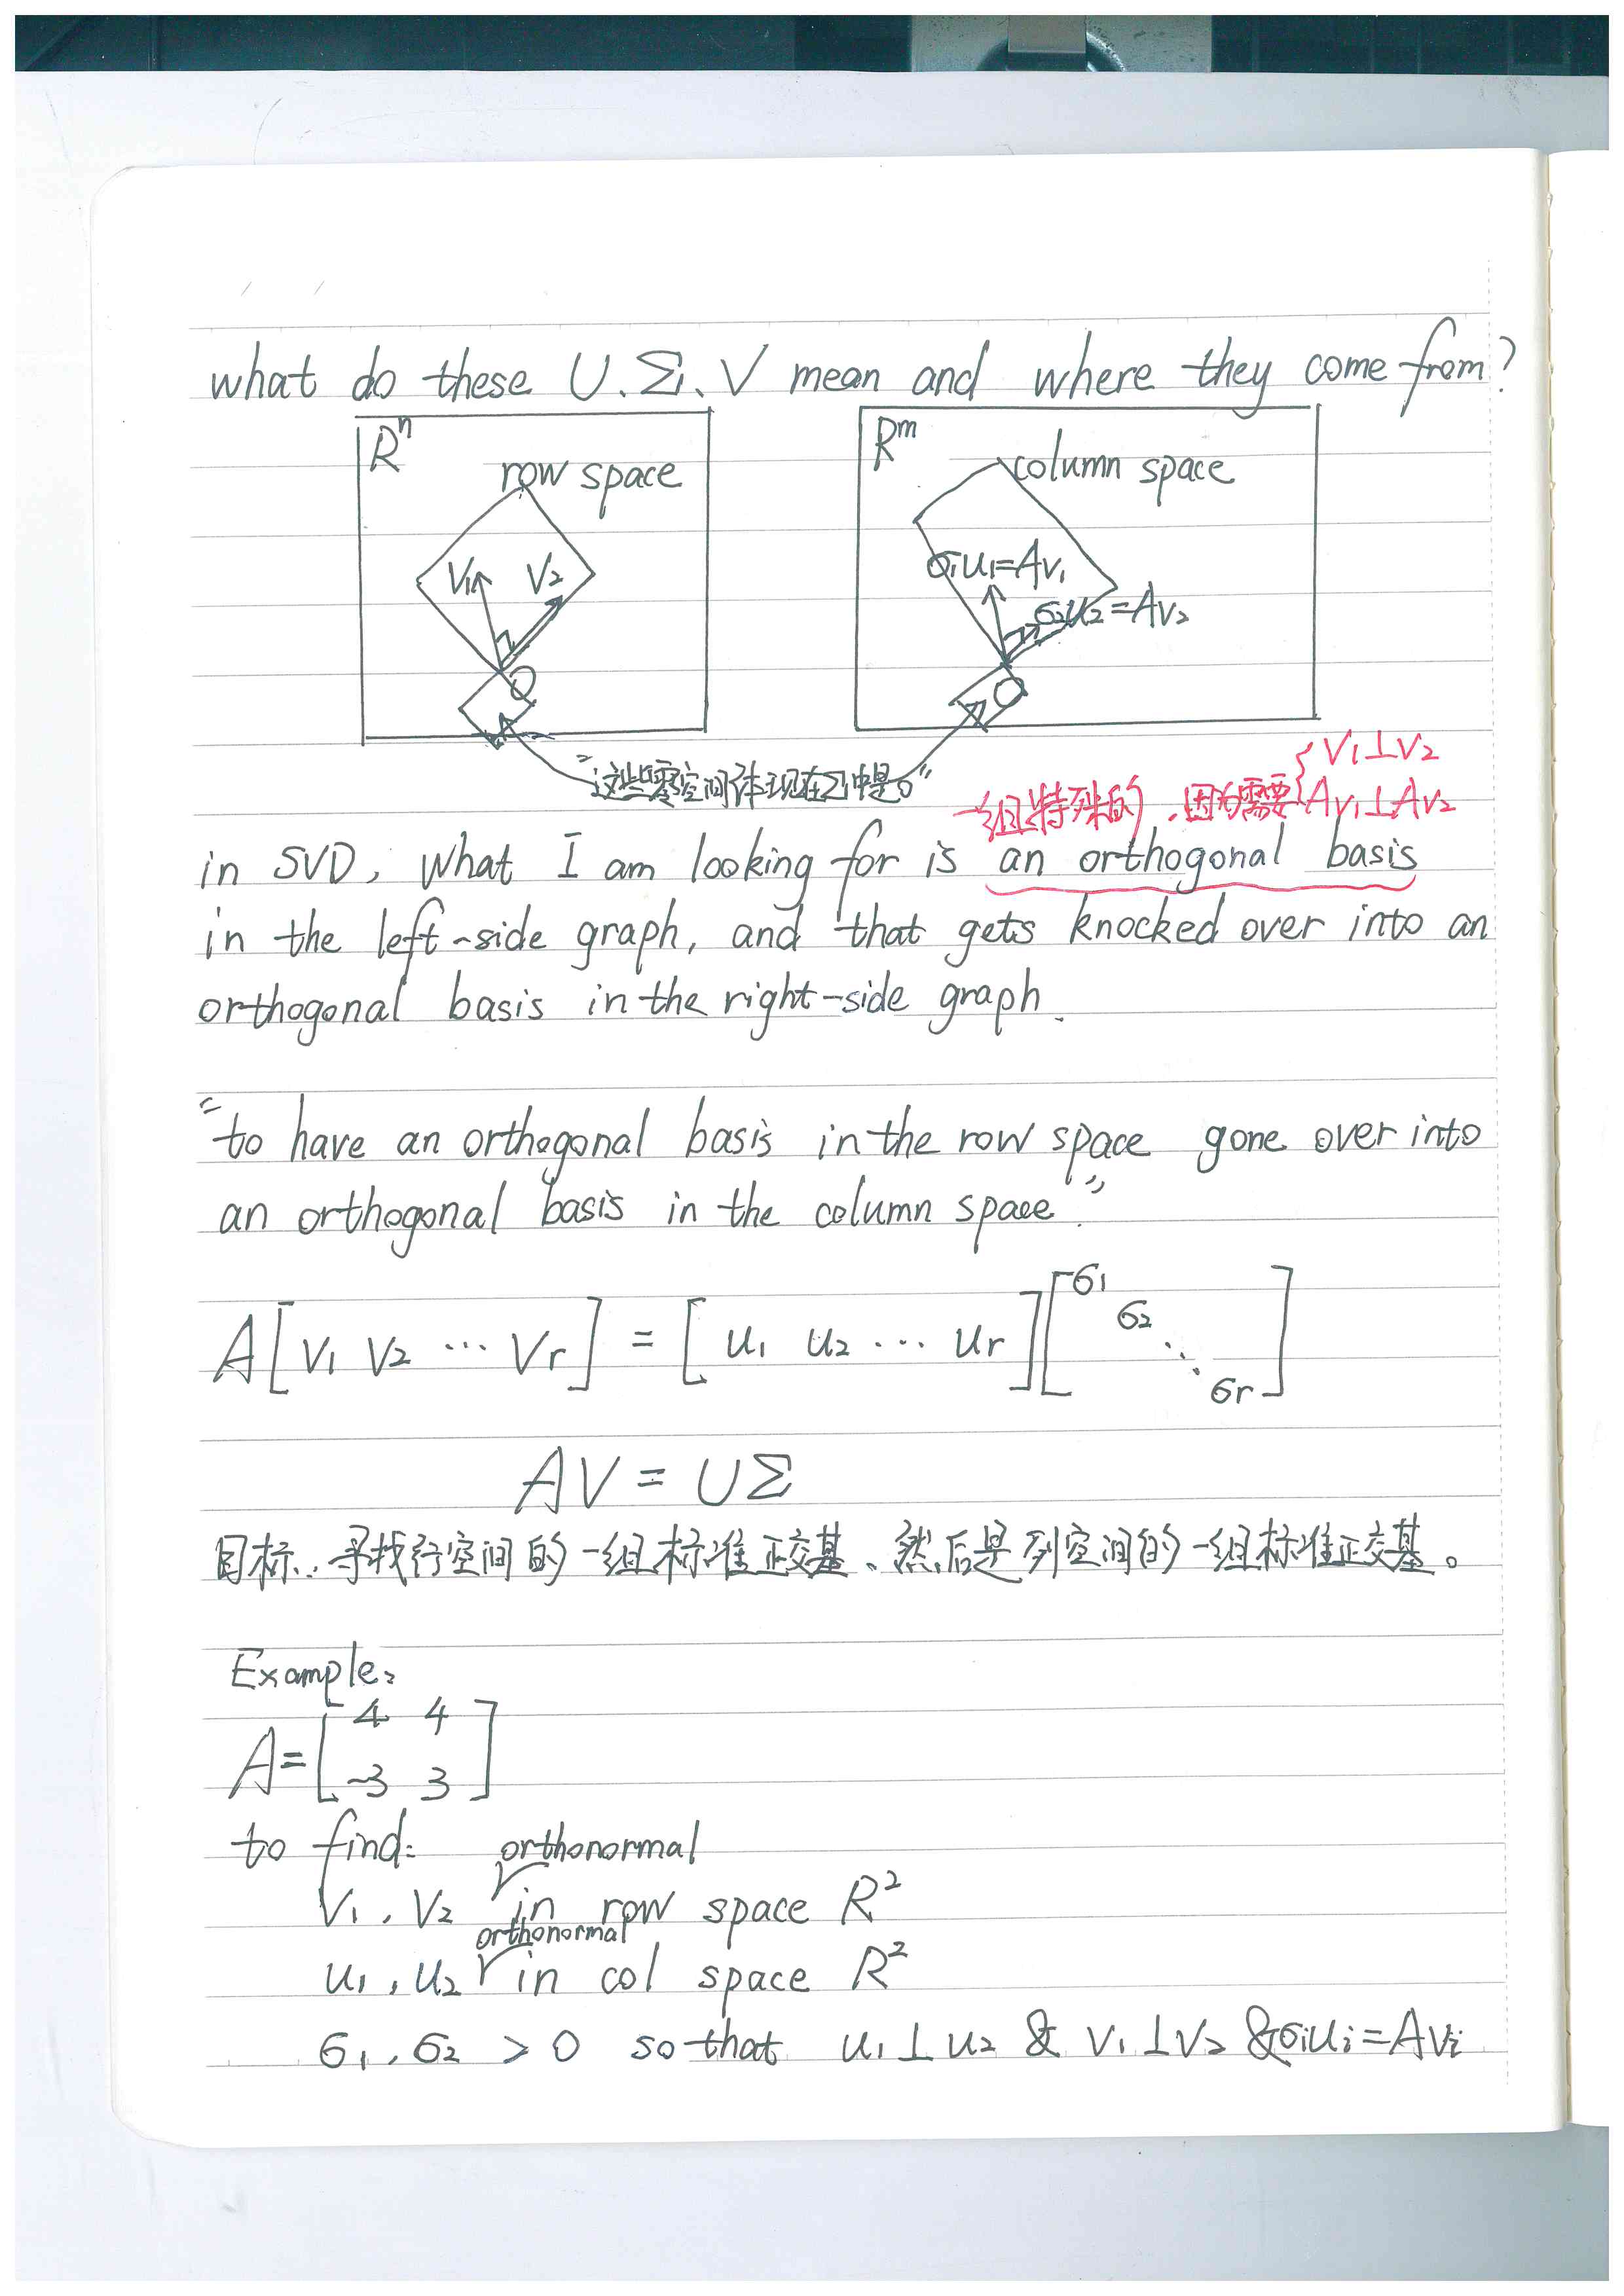 what do these U.Σ.V mean and where they come from?
Rⁿ
row space
V₁ V₂
O
Rᵐ
column space
σ₁u₁=Av₁
σ₂u₂=Av₂
O
"这些零空间体现在Σ中是0"
一组特殊的,因为需要{V₁⊥V₂
Av₁⊥Av₂
in SVD, what I am looking for is an orthogonal basis
in the left-side graph, and that gets knocked over into an
orthogonal basis in the right-side graph.
"to have an orthogonal basis in the row space gone over into
an orthogonal basis in the column space."
A[V₁ V₂ ··· Vr] = [u₁ u₂ ··· ur][σ₁ σ₂ ⋱ σr]
AV = UΣ
目标:寻找行空间的一组标准正交基、然后是列空间的一组标准正交基。
Example:
A=[4 4
-3 3]
to find: orthonormal
V₁, V₂ in row space R²
orthonormal
u₁, u₂ in col space R²
σ₁, σ₂ > 0 so that u₁⊥u₂ & V₁⊥V₂ &σᵢuᵢ=Avᵢ